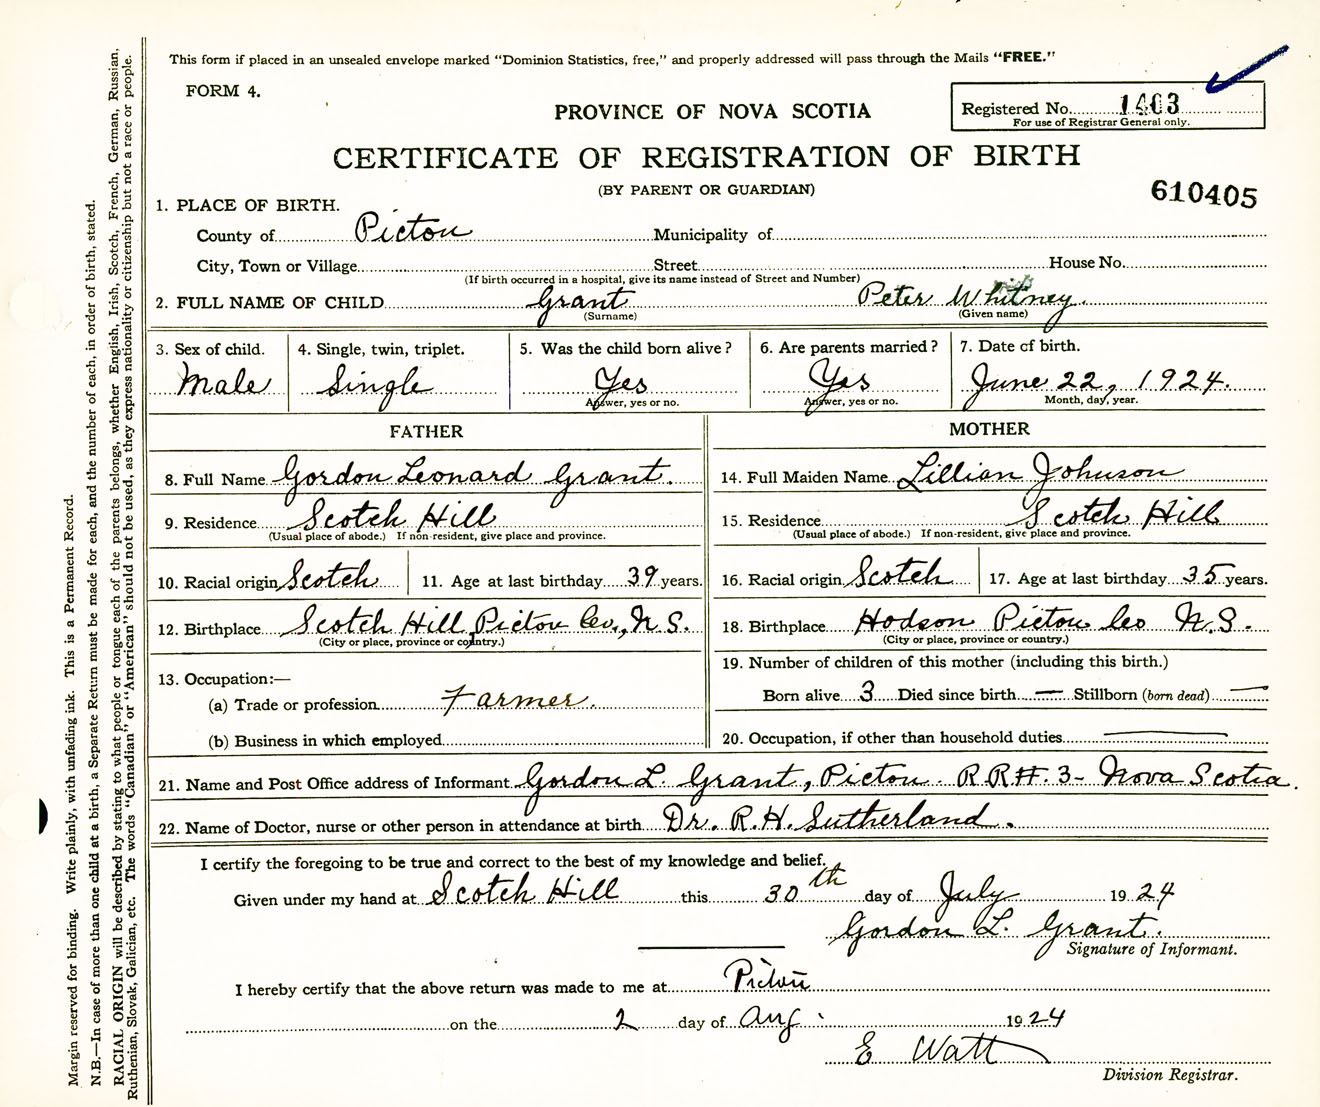 This form if placed in an unsealed envelope marked "Dominion Statistics, free," and properly addressed will pass through the Mails "FREE."
FORM 4.
PROVINCE OF NOVA SCOTIA
Registered No. 1403
For use of Registrar General only.
CERTIFICATE OF REGISTRATION OF BIRTH
(BY PARENT OR GUARDIAN)
610405
1. PLACE OF BIRTH.
County of Pictou Municipality of
City, Town or Village Street House No.
(If birth occurred in a hospital, give its name instead of Street and Number)
2. FULL NAME OF CHILD Grant Peter Whitney.
(Surname) (Given name)
3. Sex of child. 4. Single, twin, triplet. 5. Was the child born alive? 6. Are parents married? 7. Date of birth.
Male Single Yes Yes June 22, 1924.
Answer, yes or no. Answer, yes or no. Month, day, year.
FATHER MOTHER
8. Full Name Gordon Leonard Grant. 14. Full Maiden Name Lillian Johnson
9. Residence Scotch Hill 15. Residence Scotch Hill
(Usual place of abode.) If non-resident, give place and province. (Usual place of abode.) If non-resident, give place and province.
10. Racial origin Scotch 11. Age at last birthday 39 years. 16. Racial origin Scotch 17. Age at last birthday 35 years.
12. Birthplace Scotch Hill Pictou Co., N.S. 18. Birthplace Hodson Pictou Co N.S.
(City or place, province or country.) (City or place, province or country.)
13. Occupation:— 19. Number of children of this mother (including this birth.)
(a) Trade or profession Farmer. Born alive 3 Died since birth — Stillborn (born dead) —
(b) Business in which employed 20. Occupation, if other than household duties —
21. Name and Post Office address of Informant Gordon L. Grant, Pictou R R #. 3 - Nova Scotia.
22. Name of Doctor, nurse or other person in attendance at birth Dr. R. H. Sutherland.
I certify the foregoing to be true and correct to the best of my knowledge and belief.
Given under my hand at Scotch Hill this 30th day of July 1924
Gordon L. Grant.
Signature of Informant.
I hereby certify that the above return was made to me at Pictou
on the 2 day of Aug. 1924
E Watt
Division Registrar.
Margin reserved for binding. Write plainly, with unfading ink. This is a Permanent Record.
N.B.—In case of more than one child at a birth, a Separate Return must be made for each, and the number of each, in order of birth, stated.
RACIAL ORIGIN will be described by stating to what people or tongue each of the parents belongs, whether English, Irish, Scotch, French, German, Russian,
Ruthenian, Slovak, Galician, etc. The words "Canadian" or "American" should not be used, as they express nationality or citizenship but not a race or people.